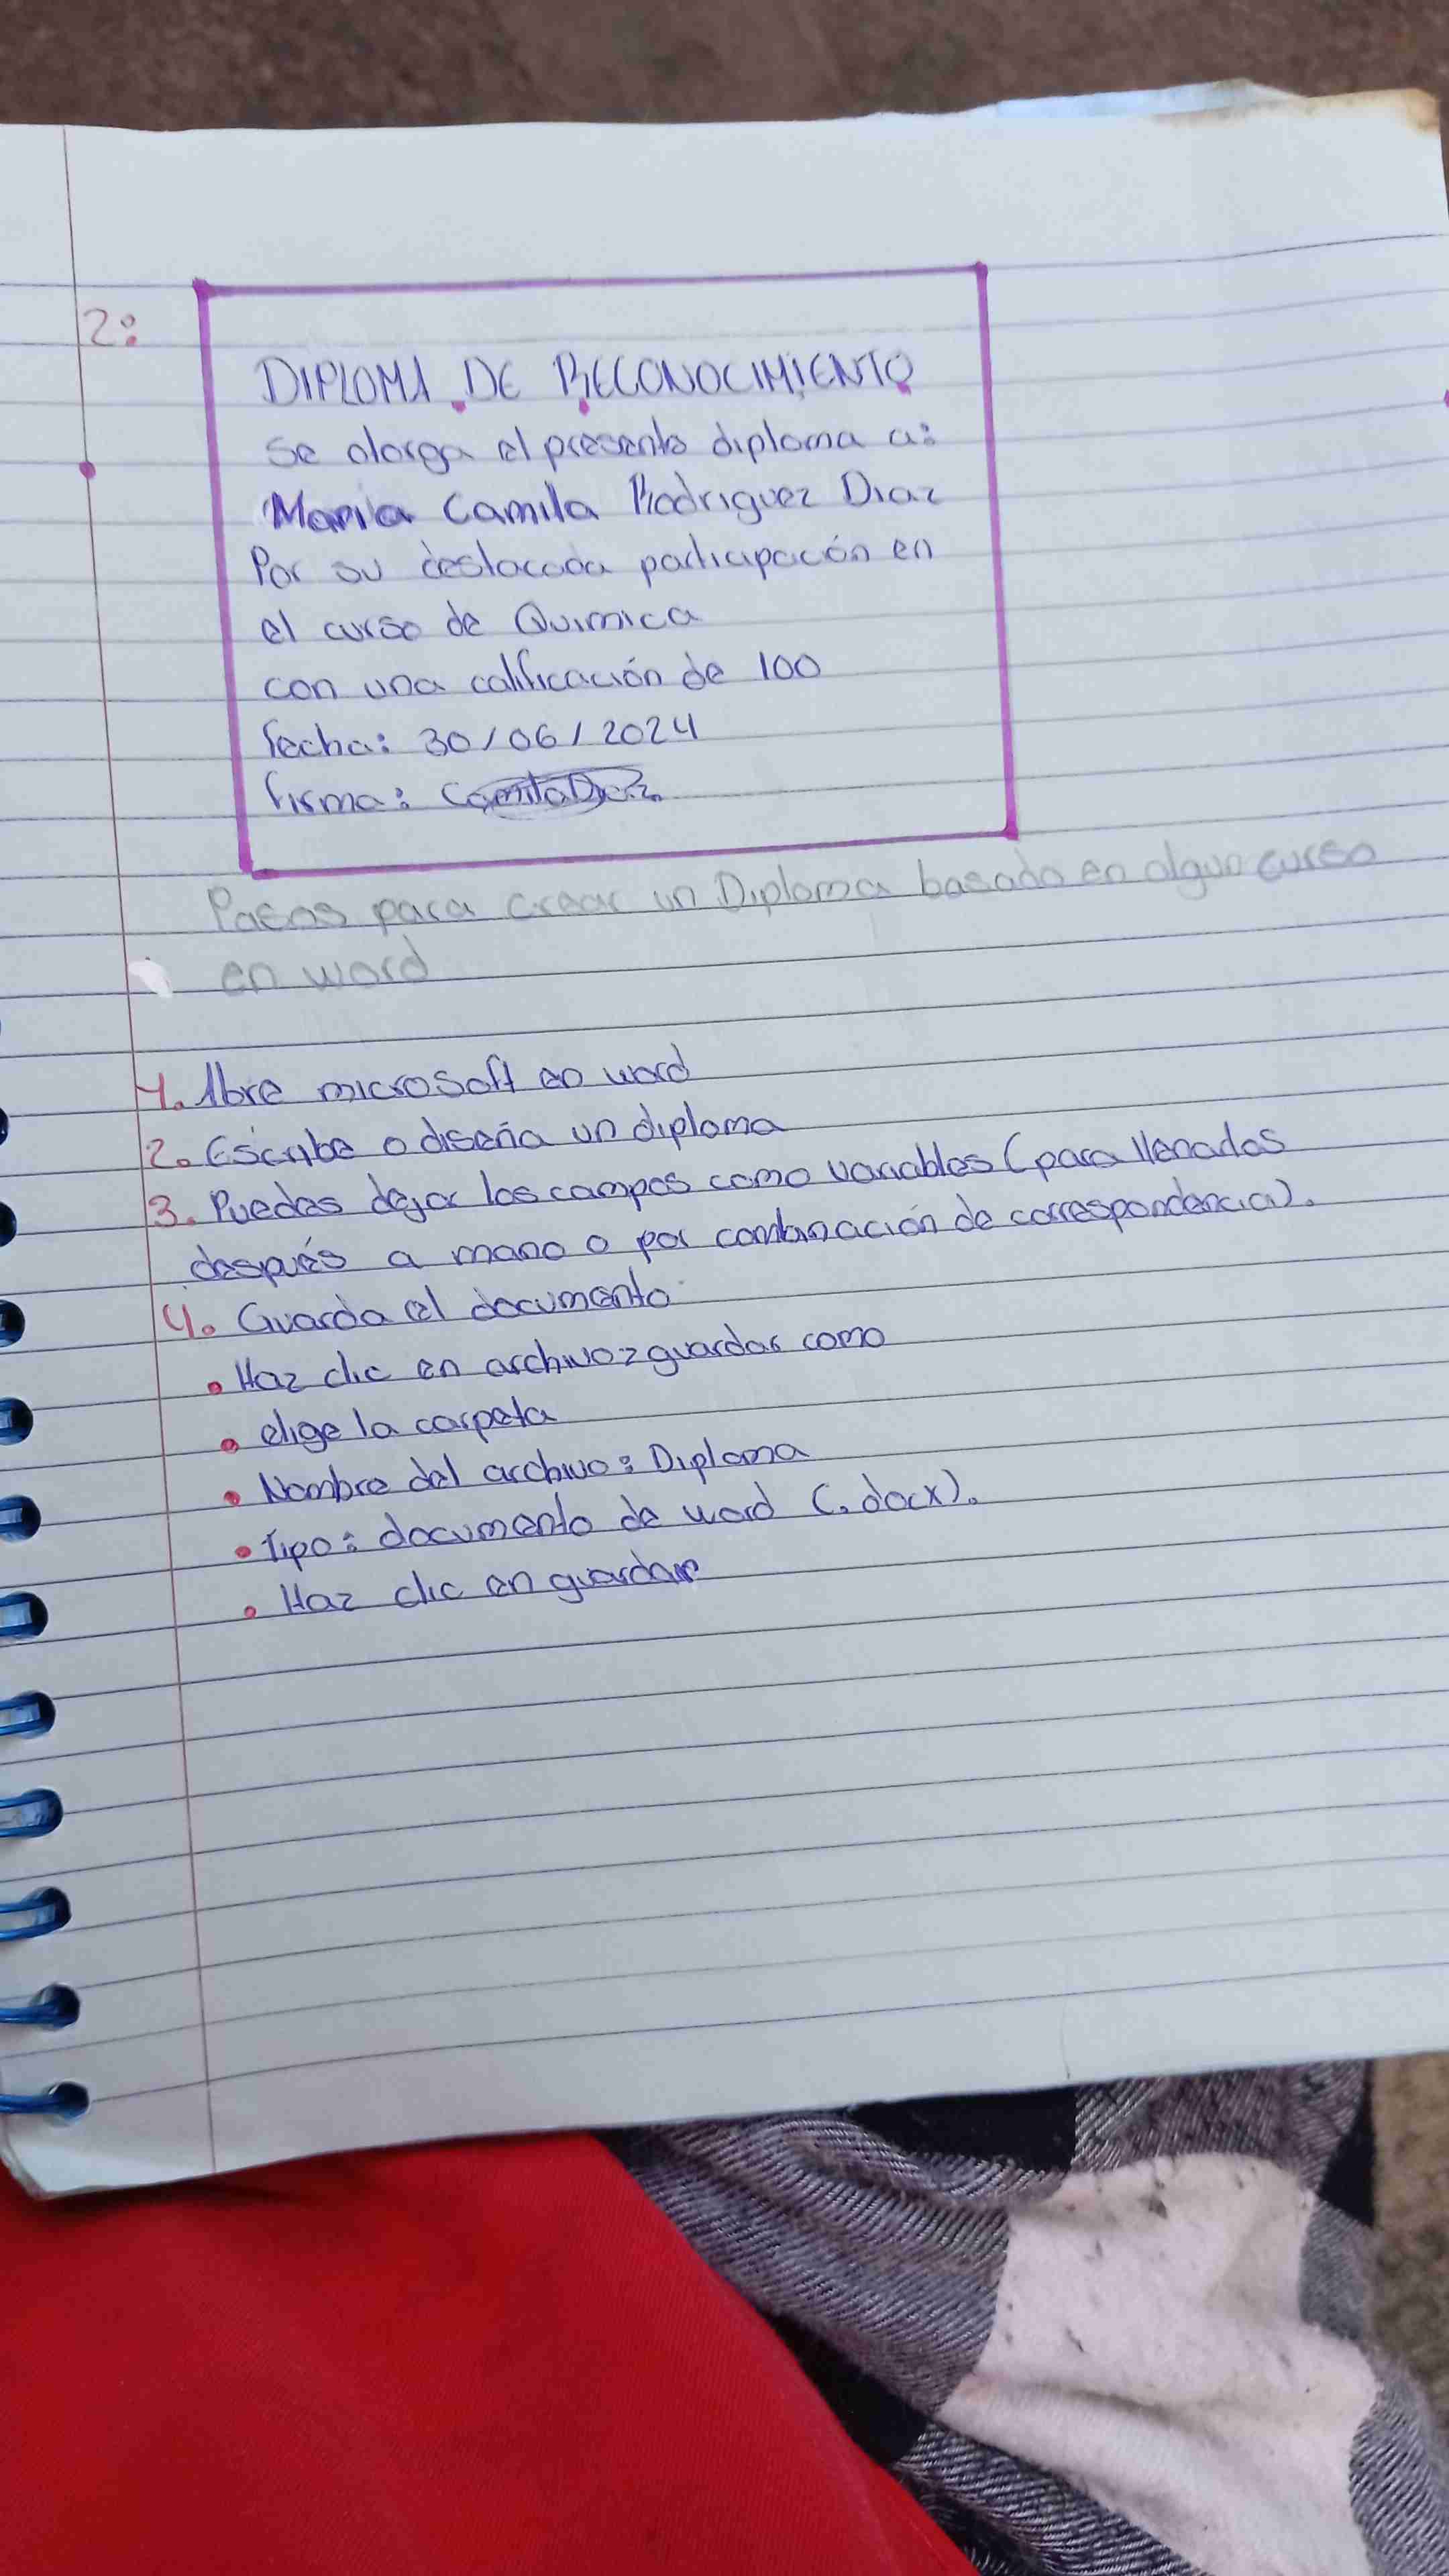 2:
DIPLOMA DE RECONOCIMIENTO
Se otorga el presente diploma a:
Maria Camila Rodriguez Diaz
Por su destacada participación en
el curso de Quimica
con una calificación de 100
fecha: 30/06/2024
firma: Camila Diaz
Pasos para crear un Diploma basado en algun curso
en word
1. Abre microsoft en word
2. Escribe o diseña un diploma
3. Puedes dejar los campos como variables (para llenados
después a mano o por combinación de correspondencia).
4. Guarda el documento
• Haz clic en archivo > guardar como
• elige la carpeta
• Nombre del archivo: Diploma
• Tipo: documento de word (.docx).
• Haz clic en guardar